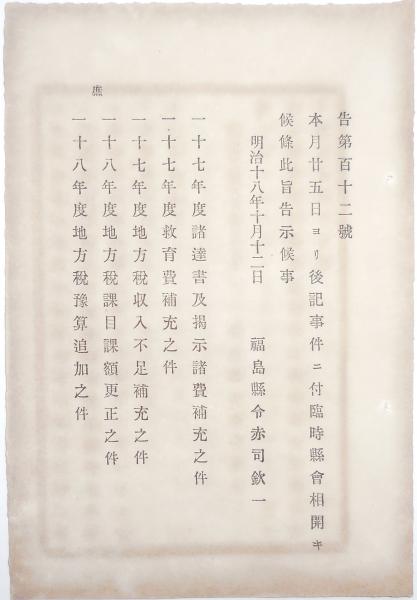 告第百十二號
本月廿五日ヨリ後記事件ニ付臨時縣會相開キ
候條此旨告示候事
明治十八年十月十二日
福島縣令赤司欽一
一十七年度諸達書及揭示諸費補充之件
一十七年度救育費補充之件
一十七年度地方稅收入不足補充之件
一十八年度地方稅課目課額更正之件
庶
一十八年度地方稅豫算追加之件